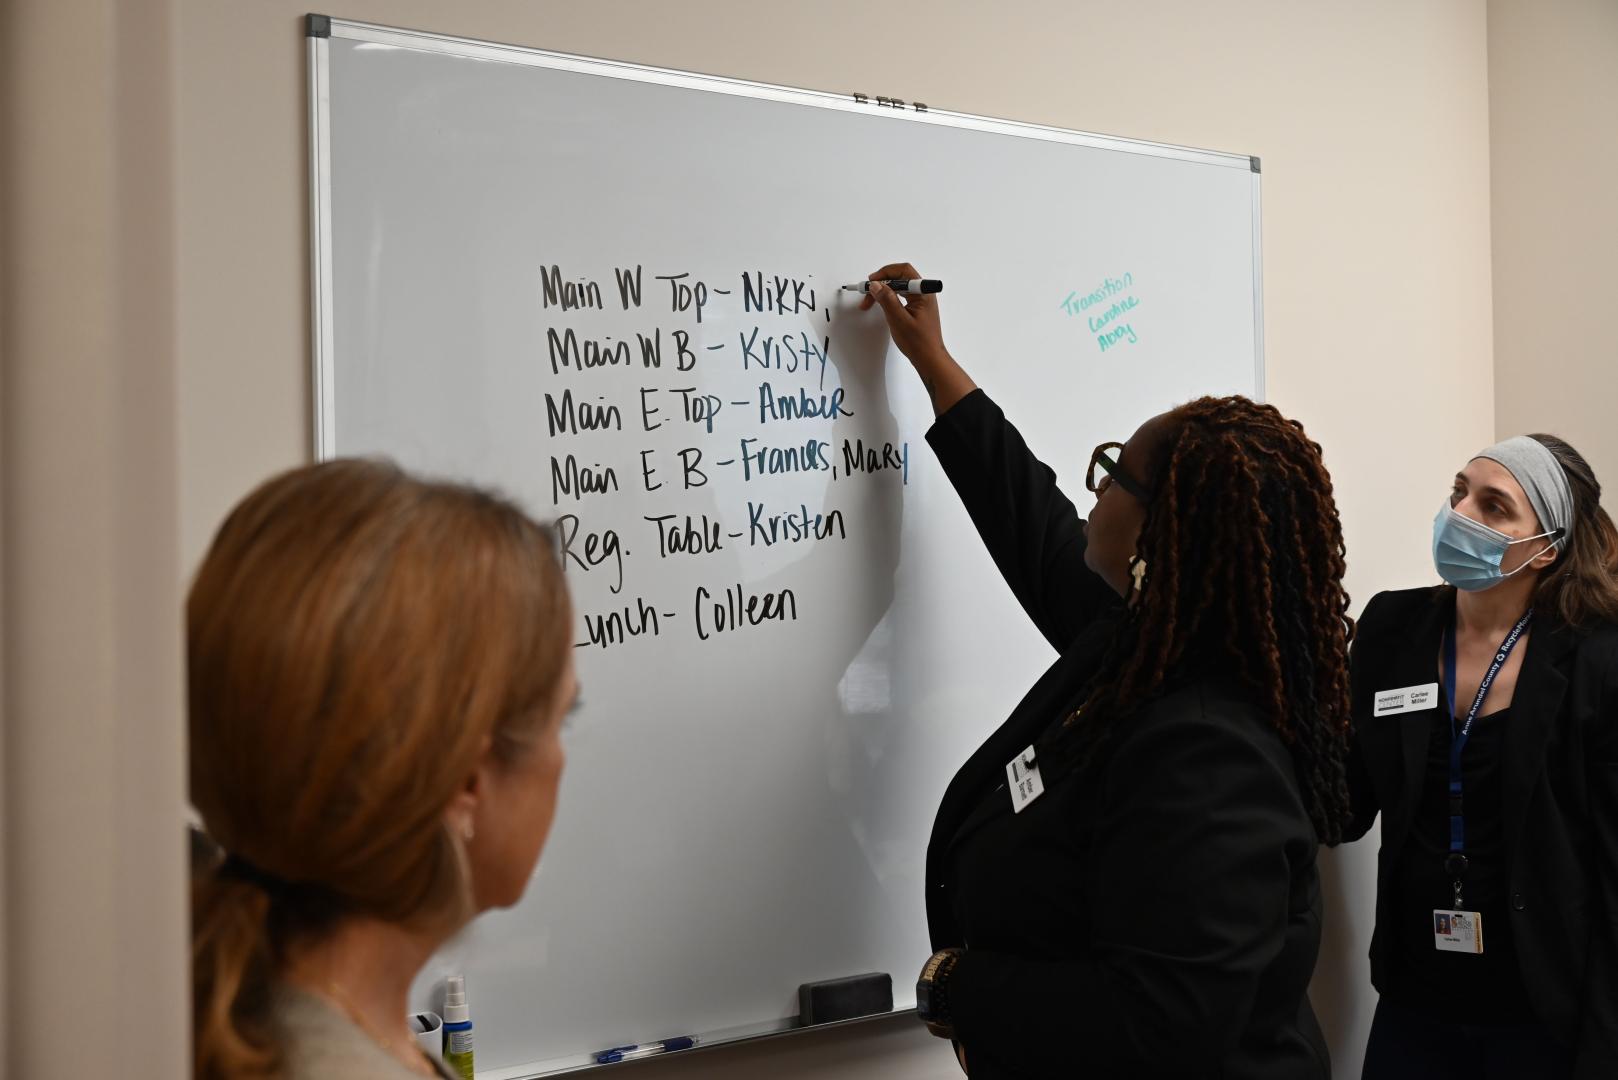 Main W Top - Nikki,
Main W B - Kristy
Main E. Top - Amber
Main E. B - Frances, Mary
Reg. Table - Kristen
Lunch - Colleen
Transition
Caroline
Abby
Carlee
Miller
Anne Arundel County